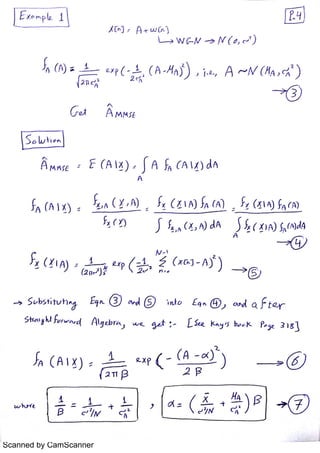 Example 1
P.4
x[n] = A + w[n]
↳ WGN → N(0, σ²)
f_A (A) = 1/√(2πσ_A²) exp(-1/(2σ_A²) (A-M_A)²), i.e., A ~ N(M_A, σ_A²)
→ ③
Get Â_MMSE
Solution
Â_MMSE = E(A|X) = ∫_A A f_A (A|X) dA
f_A (A|X) = f_X,A (X,A) / f_X (X) = f_X (X|A) f_A (A) / ∫ f_X,A (X,A) dA = f_X (X|A) f_A (A) / ∫_A f_X (X|A) f_A (A) dA
→ ④
f_X (X|A) = 1/(2πσ²)^(N/2) exp(-1/(2σ²) Σ_{n=0}^{N-1} (x[n]-A)²) → ⑤
→ Substituting Eqn. ③ and ⑤ into Eqn ④, and after
Straight forward Algebra, we get :- [See Kay's book Page 318]
f_A (A|X) = 1/√(2πβ) exp(-(A-α)²/(2β)) → ⑥
where 1/β = 1/(σ²/N) + 1/σ_A² , α = (x̄/(σ²/N) + M_A/σ_A²) β → ⑦
Scanned by CamScanner